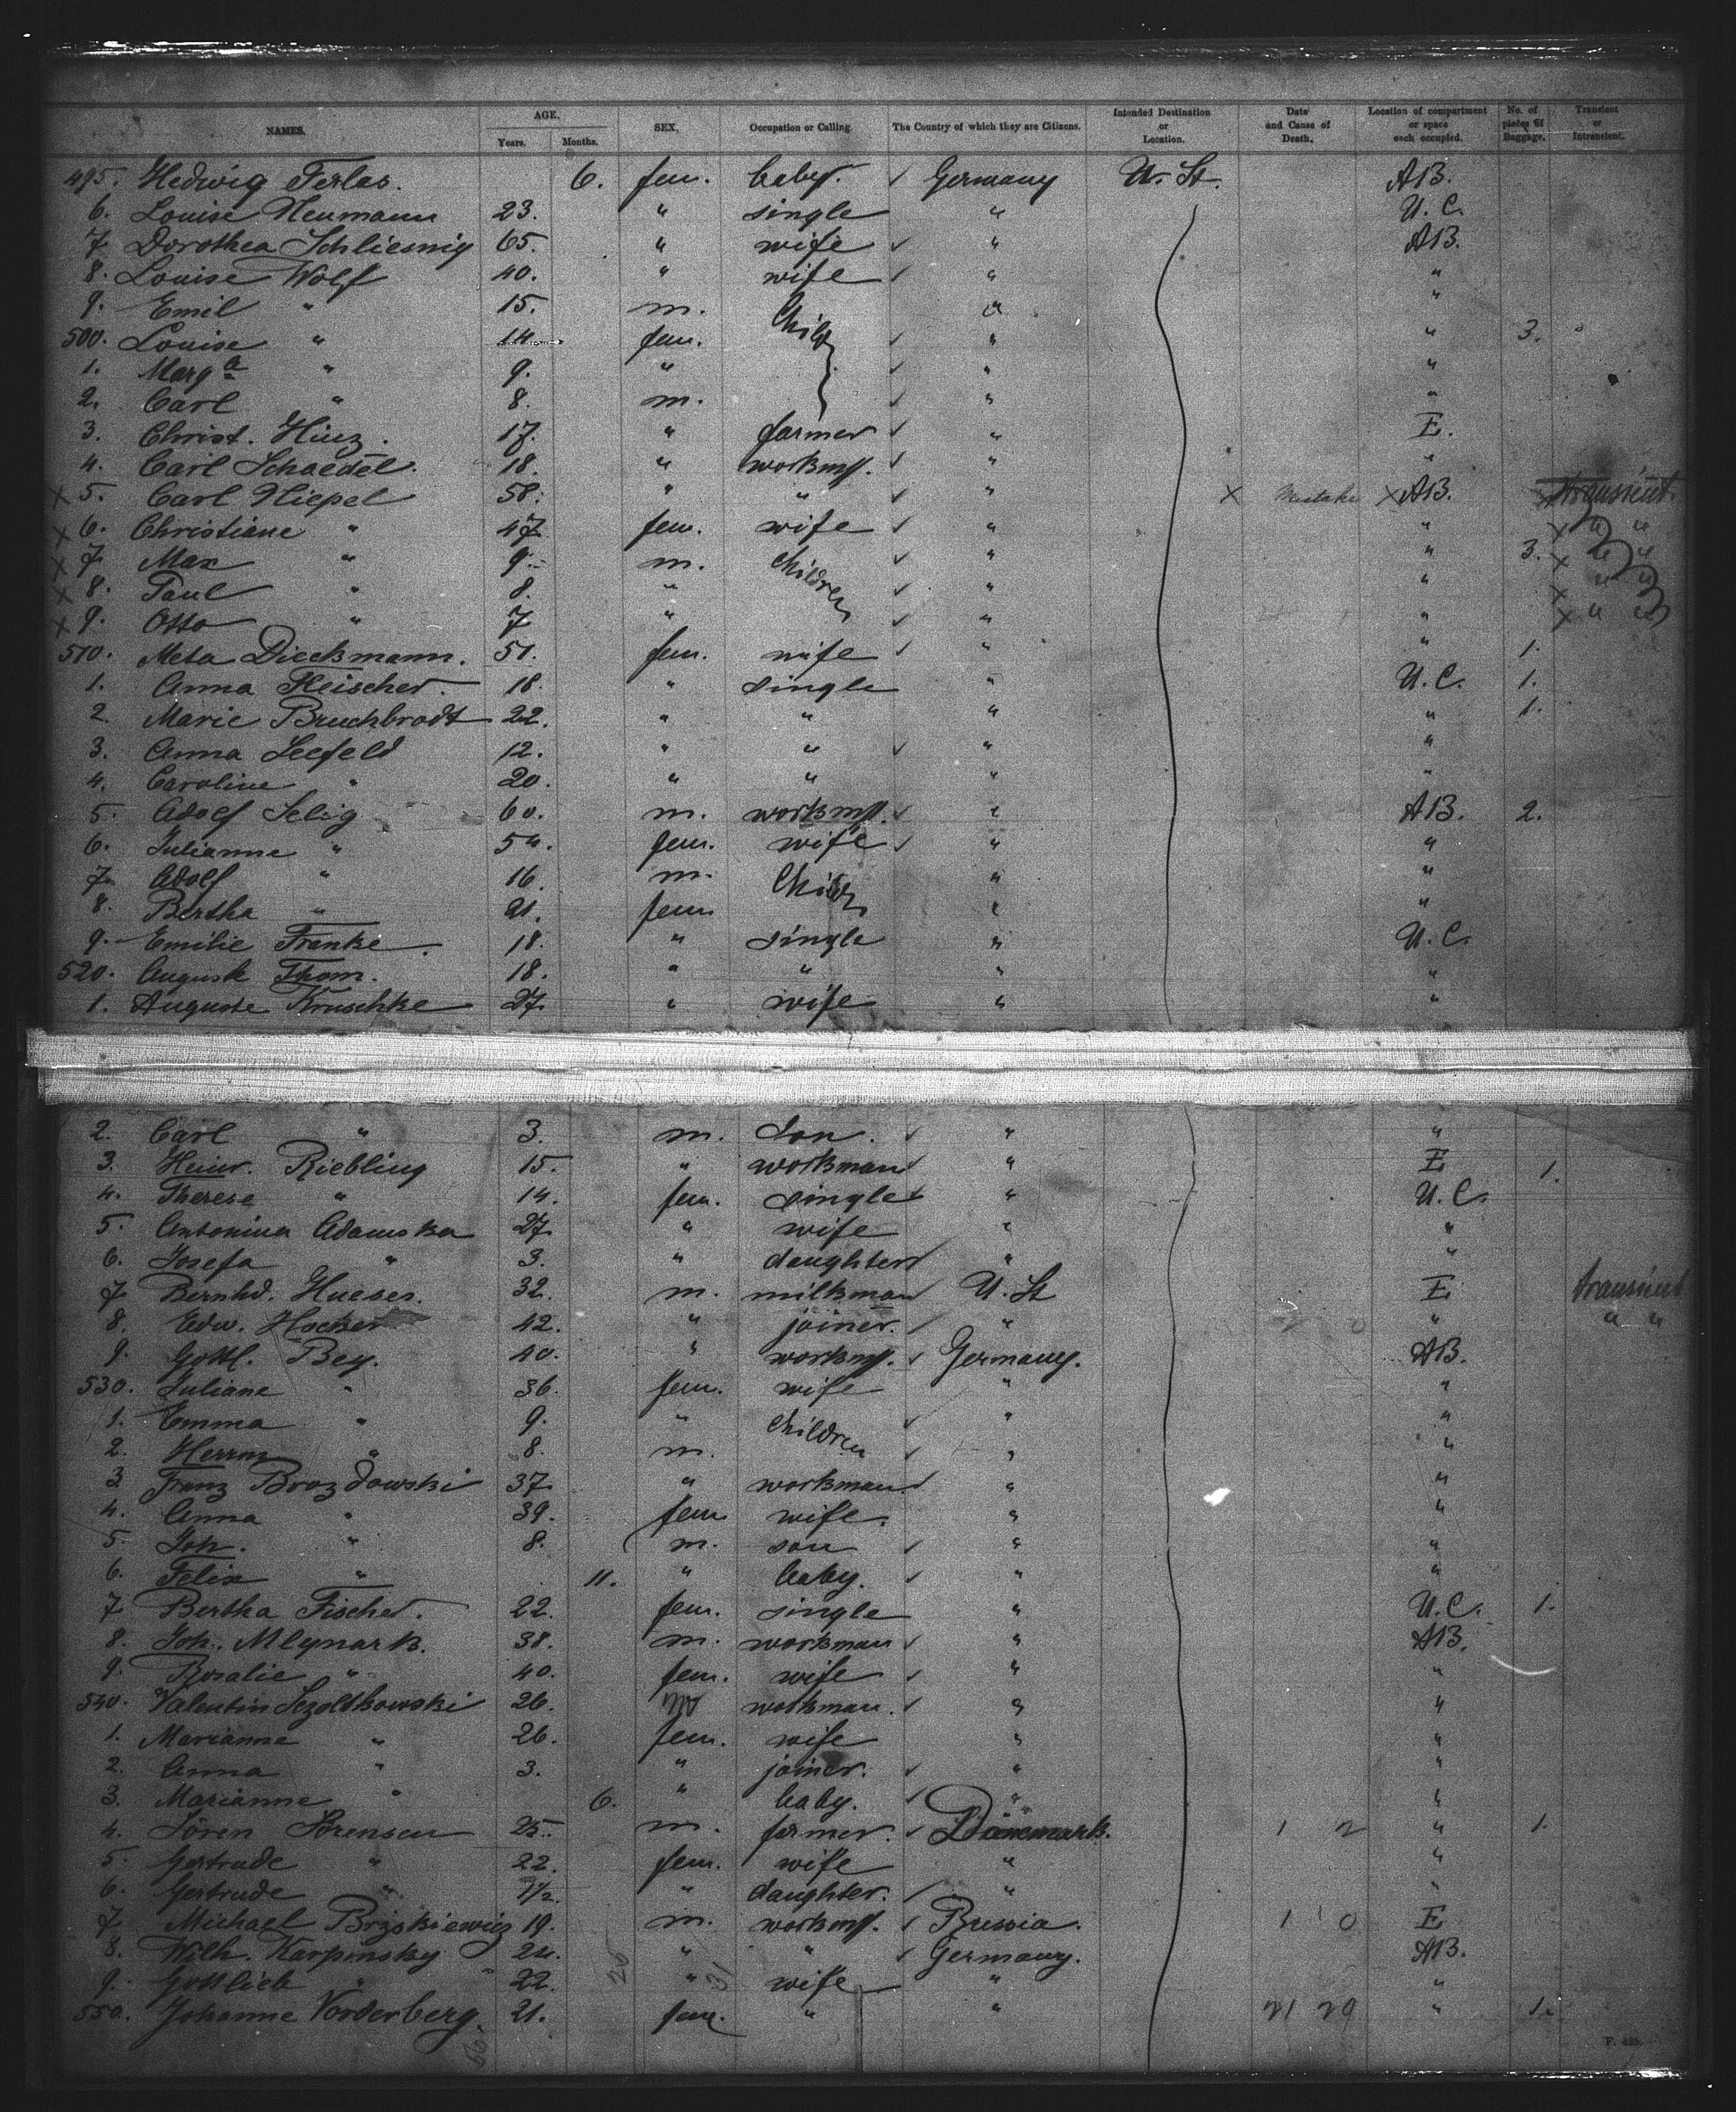 NAMES. AGE. Years. Months. SEX. Occupation or Calling. The Country of which they are Citizens. Intended Destination or Location. Date and Cause of Death. Location of compartment or space each occupied. No. of pieces of Baggage. Transient or Intransient.
495. Hedwig 6. fem. baby. ✓ Germany U. St. AB.
6. Louise Neumann 23. " single " U. C.
7 Dorothea Schliesnig 65. " wife ✓ " AB.
8. Louise Wolf 40. " wife ✓ " "
9. Emil " 15. m. Child " "
500. Louise " 14 fem. ✓ " " 3.
1. Marga " 9. " ✓ " "
2. Carl " 8. m. ✓ " "
3. Christ. Hinz. 17. " farmer ✓ " E.
4. Carl Schaedel. 18. " workm. ✓ " "
x 5. Carl Hiepel 58. " " ✓ " x Mistake x AB. transient
x 6. Christiane " 47 fem. wife ✓ " " x " "
x 7 Max " 9. m. Children ✓ " " 3. x " "
x 8. Paul " 8. " ✓ " " x " "
x 9. Otto " 7 " ✓ " " x " "
510. Meta Dieckmann. 51. fem. wife ✓ " " 1.
1. Anna Fleischer. 18. " single " U. C. 1.
2. Marie Bruchbrodt 22. " " " " 1.
3. Anna Seefeld 12. " " ✓ " "
4. Caroline " 20. " " " "
5. Adolf Selig 60. m. workm. ✓ " AB. 2.
6. Julianne " 54. fem. wife ✓ " "
7 Adolf " 16. m. Child " "
8. Bertha " 21. fem " "
9. Emilie Franke. 18. " single " U. C.
520. August Thom. 18. " " " "
1. Auguste Kruschke 27. " wife " "
2. Carl " 3. m. Son. ✓ " "
3. Heinr. Riebling 15. " workman " E 1.
4. Therese " 14. fem. single ✓ " U. C.
5. Antonina Adamska 27. " wife " "
6. Josefa " 3. " daughter " "
7 Bernhd. Hueser. 32. m. milkman U. St E transient
8. Edw. Hocker 42. " joiner. ✓ " " " "
9. Gottl. Bey. 40. " workm. ✓ Germany. AB.
530. Juliane " 36. fem. wife " "
1. Emma " 9. " Children ✓ " "
2. Herrm " 8. m. ✓ " "
3 Franz Brozdowski 37. " workman ✓ " "
4. Anna " 39. fem wife. " "
5. Joh. " 8. m. son ✓ " "
6. Felix " 11. " baby. ✓ " "
7 Bertha Fischer. 22. fem. single " U. C. 1.
8. Joh. Mlynark. 38. m. workman ✓ " AB.
9. Rosalie " 40. fem. wife ✓ " "
540. Valentin Sezoltkowski 26. m workman. ✓ " "
1. Marianne " 26. fem. wife " "
2. Anna " 3. " joiner. ✓ " "
3. Marianne " 6. " baby. ✓ " "
4. Sören Sörensen 25. m. farmer. ✓ Dänemark. 1 2 " 1.
5. Gertrude " 22. fem. wife " "
6. Gertrude " 1 1/2. " daughter. ✓ " "
7 Michael Brzskiewicz 19. m. workm. ✓ Russia. 1 0 E
8. Wilh. Karpinsky 24. " " ✓ Germany. AB.
9. Gottlieb " 22. " wife " "
550. Johanne Vorderberg. 21. fem. " " 21 29 " 1.
F. 425.